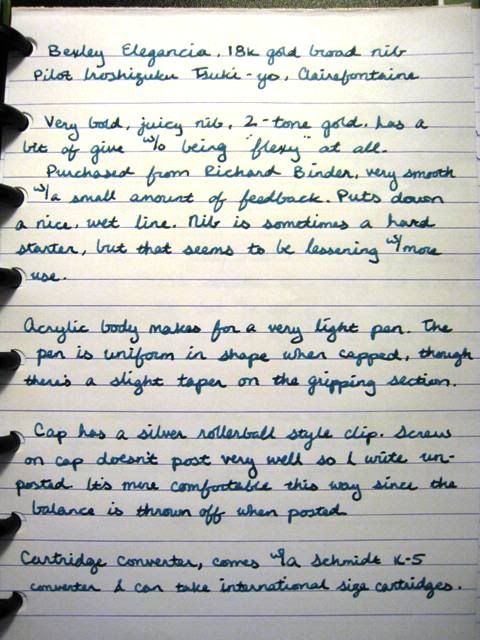 Bexley Elegancia, 18k gold broad nib
Pilot Iroshizuku Tsuki-yo, Clairefontaine
Very bold, juicy nib, 2-tone gold. has a
bit of give w/o being "flexy" at all.
Purchased from Richard Binder, very smooth
w/a small amount of feedback. Puts down
a nice, wet line. Nib is sometimes a hard
starter, but that seems to be lessening w/more
use.
Acrylic body makes for a very light pen. The
pen is uniform in shape when capped, though
there's a slight taper on the gripping section.
Cap has a silver rollerball style clip. Screw
on cap doesn't post very well so I write un-
posted. It's more comfortable this way since the
balance is thrown off when posted.
Cartridge converter, comes w/a Schmidt K-5
converter & can take international size cartridges.